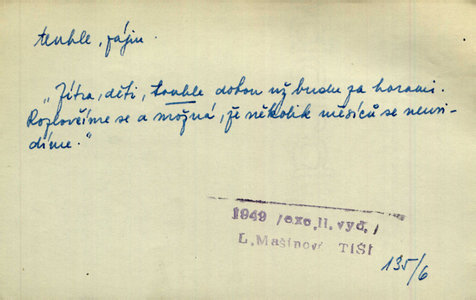 tenhle, zájm.
"Zítra, děti, touhle dobou už budu za horami.
Rozloučíme se a možná, že několik měsíců se neuvi-
díme."
1949 /exc. II. vyd./
L. Mašínová TIŠI
135/6